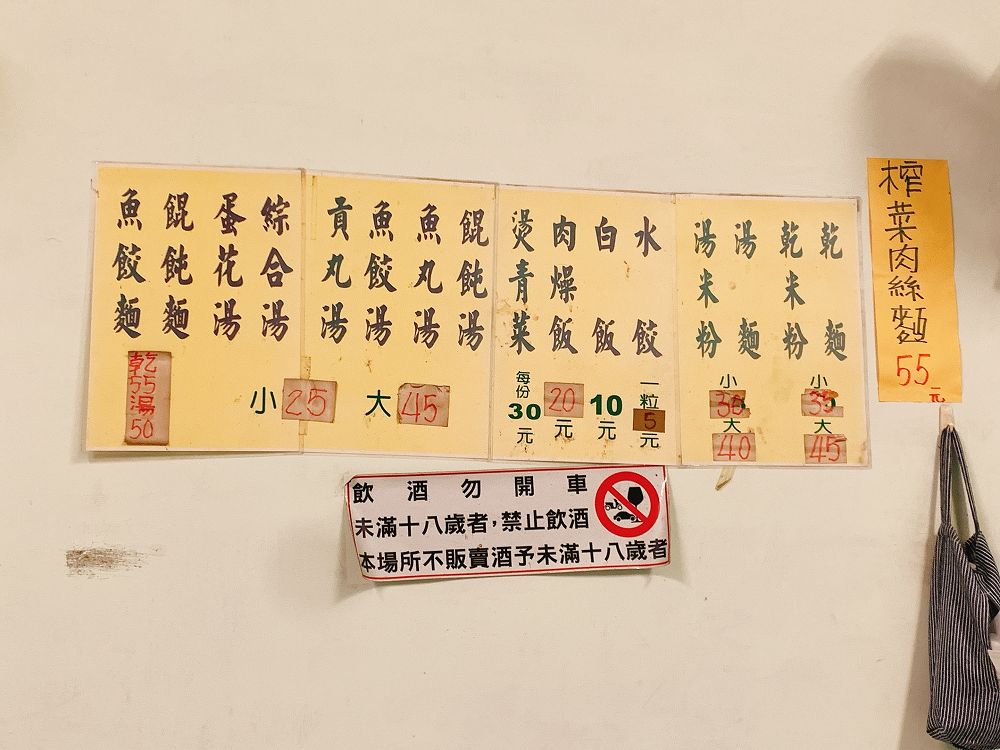 榨菜肉絲麵
55元
乾麵
乾米粉
小
35
大
45
湯麵
湯米粉
小
30
大
40
水餃
一粒5元
白飯
10元
肉燥飯
20元
燙青菜
每份30元
餛飩湯
魚丸湯
魚餃湯
貢丸湯
綜合湯
蛋花湯
小25 大45
餛飩麵
魚餃麵
乾55湯50
飲酒勿開車
未滿十八歲者,禁止飲酒
本場所不販賣酒予未滿十八歲者